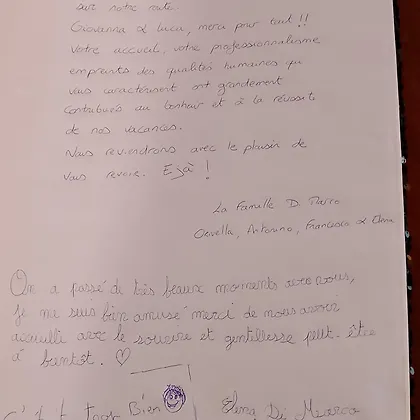 sur notre route.
Giovanna & Luca, merci pour tout !!
Votre accueil, votre professionnalisme
emprunts des qualités humaines qui
vous caractérisent ont grandement
contribués au bonheur et à la réussite
de nos vacances.
Nous reviendrons avec le plaisir de
vous revoir. Ejà !
La Famille D.
Antonino, Francesco & Elena
On a passé de très beaux moments avec vous,
je me suis bien amusé merci de nous avoir
accueilli avec le sourire et gentillesse peut-être
à bientôt. ♡
Bien
Elena Di